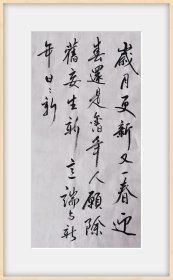 歲月更新又一春迎
春還是舊年人願除
舊妄生新意端与新
年日〻新